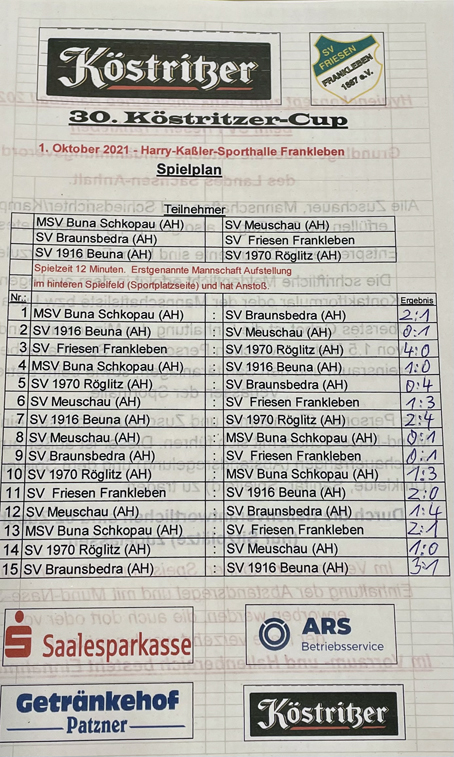 Köstritzer
SV
FRIESEN
FRANKLEBEN
1887 e.V.
30. Köstritzer-Cup
1. Oktober 2021 - Harry-Kaßler-Sporthalle Frankleben
Spielplan
Teilnehmer
MSV Buna Schkopau (AH) SV Meuschau (AH)
SV Braunsbedra (AH) SV Friesen Frankleben
SV 1916 Beuna (AH) SV 1970 Röglitz (AH)
Spielzeit 12 Minuten. Erstgenannte Mannschaft Aufstellung
im hinteren Spielfeld (Sportplatzseite) und hat Anstoß.
Nr.: Ergebnis
1 MSV Buna Schkopau (AH) : SV Braunsbedra (AH) 2:1
2 SV 1916 Beuna (AH) : SV Meuschau (AH) 0:1
3 SV Friesen Frankleben : SV 1970 Röglitz (AH) 4:0
4 MSV Buna Schkopau (AH) : SV 1916 Beuna (AH) 1:0
5 SV 1970 Röglitz (AH) : SV Braunsbedra (AH) 0:4
6 SV Meuschau (AH) : SV Friesen Frankleben 1:3
7 SV 1916 Beuna (AH) : SV 1970 Röglitz (AH) 2:4
8 SV Meuschau (AH) : MSV Buna Schkopau (AH) 0:1
9 SV Braunsbedra (AH) : SV Friesen Frankleben 0:1
10 SV 1970 Röglitz (AH) : MSV Buna Schkopau (AH) 1:3
11 SV Friesen Frankleben : SV 1916 Beuna (AH) 2:0
12 SV Meuschau (AH) : SV Braunsbedra (AH) 1:4
13 MSV Buna Schkopau (AH) : SV Friesen Frankleben 2:1
14 SV 1970 Röglitz (AH) : SV Meuschau (AH) 1:0
15 SV Braunsbedra (AH) : SV 1916 Beuna (AH) 3:1
Saalesparkasse
ARS
Betriebsservice
Getränkehof
Patzner
Köstritzer